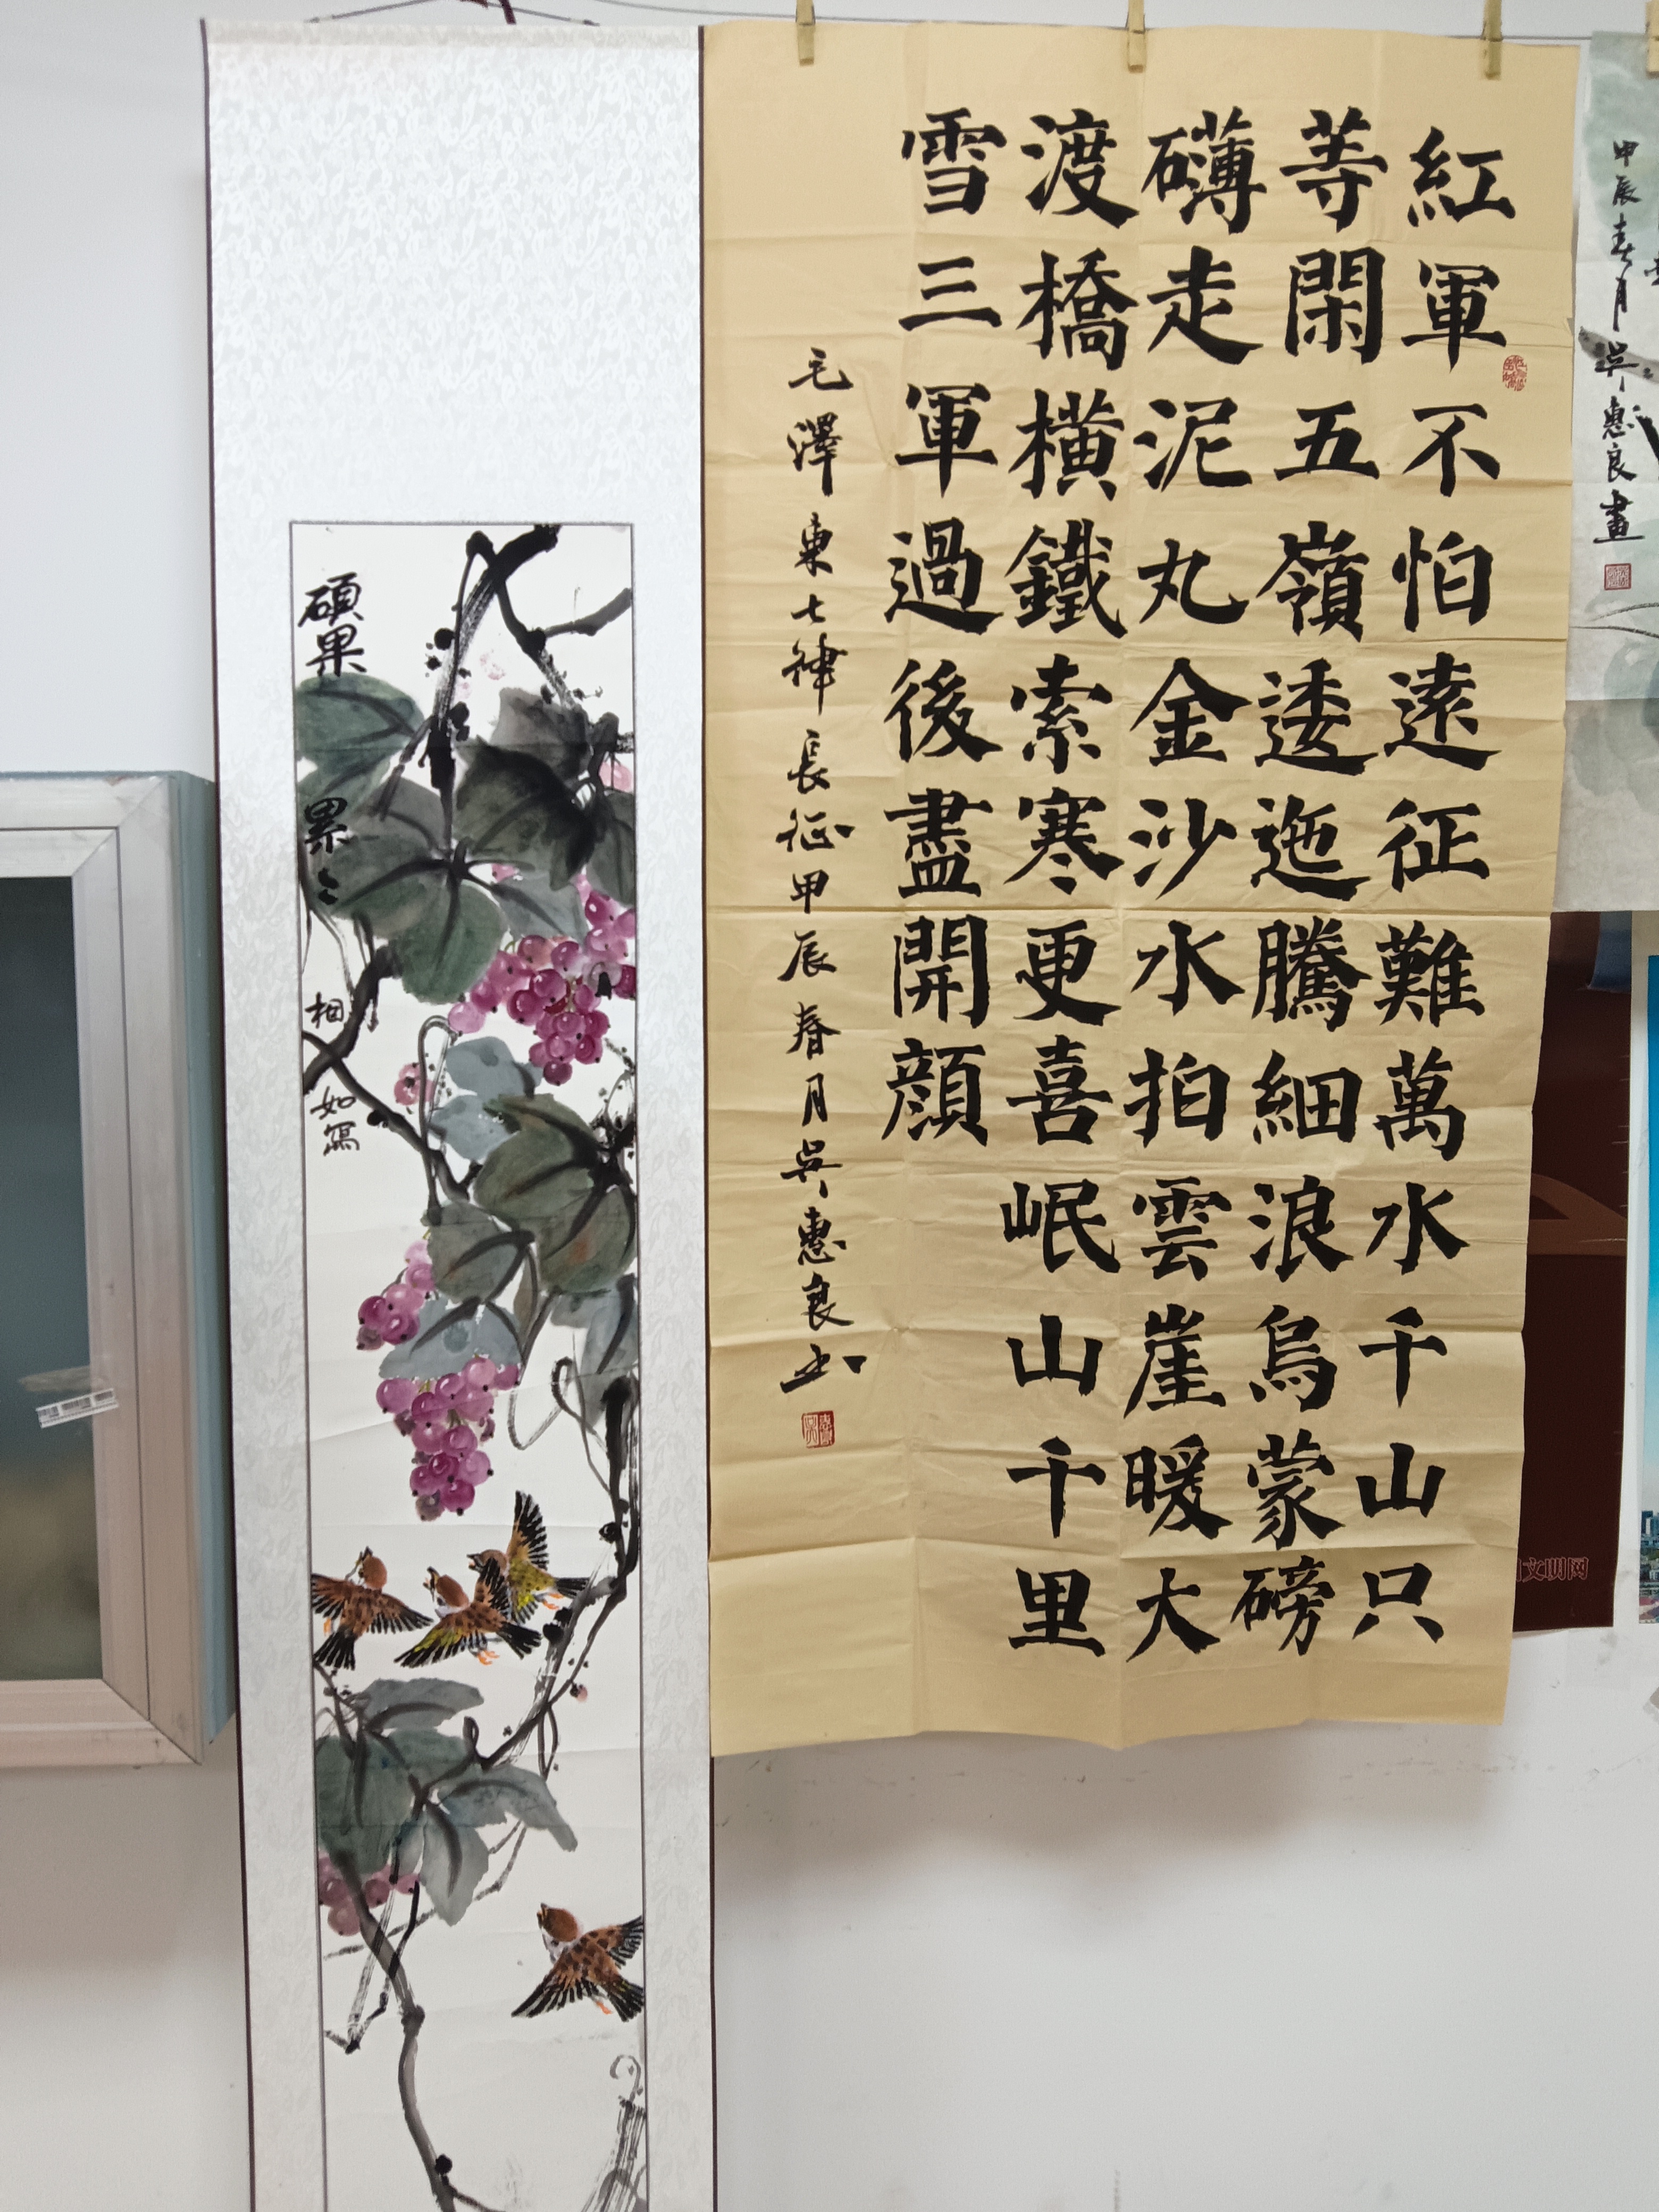 甲辰春月吳惠良畫
紅軍不怕遠征難萬水千山只
等閑五嶺逶迤騰細浪烏蒙磅
礴走泥丸金沙水拍雲崖暖大
渡橋橫鐵索寒更喜岷山千里
雪三軍過後盡開顏
毛澤東七律長征甲辰春月吳惠良书
碩果累々相如寫
文明网